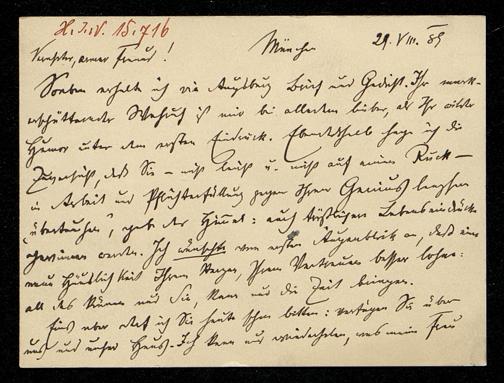 H.I.N. 15.716
Verehrter, armer Freund! München 29. VIII. 89
Soeben erhalte ich via Augsburg Brief und Gedicht. Ihr mark-
erschütternder Wehruf ist mir bei alledem lieber, als Ihr
Humor unter dem ersten Eindruck. Ebendeshalb hege ich die
Zuversicht, daß Sie – nicht leicht u. nicht auf einen Ruck –
in Arbeit und Pflichterfüllung gegen Ihren Genius langsam
"übertauchen", gebe der Himmel: auch
gewinnen werden. Ich wünschte vom ersten Augenblick an, daß eine
neue Häuslichkeit Ihrem Herzen, Ihrem Vertrauen besser lohne:
all das kann und die Zeit bringen.
Für aber darf ich Sie heute schon bitten: verfügen Sie über
uns und unser Haus. Ich kann nur wiederholen, was meine Frau